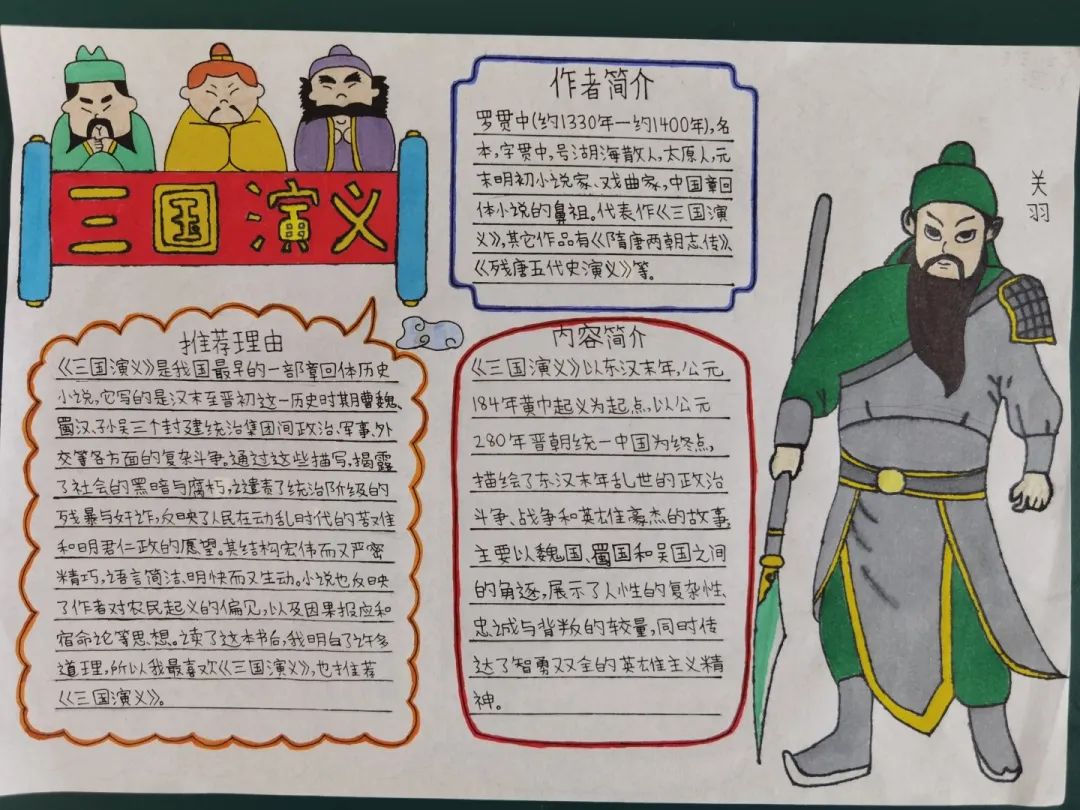 三国演义
作者简介
罗贯中(约1330年一约1400年),名
本,字贯中,号湖海散人,太原人,元
末明初小说家、戏曲家,中国章回
体小说的鼻祖。代表作《三国演
义》,其它作品有《隋唐两朝志传》、
《残唐五代史演义》等。
关羽
推荐理由
《三国演义》是我国最早的一部章回体历史
小说,它写的是汉末至晋初这一历史时期曹魏、
蜀汉、孙吴三个封建统治集团间政治、军事、外
交等各方面的复杂斗争。通过这些描写,揭露
了社会的黑暗与腐朽,谴责了统治阶级的
残暴与奸诈,反映了人民在动乱时代的苦难
和明君仁政的愿望。其结构宏伟而又严密
精巧,语言简洁、明快而又生动。小说也反映
了作者对农民起义的偏见,以及因果报应和
宿命论等思想。读了这本书后,我明白了许多
道理,所以我最喜欢《三国演义》,也推荐
《三国演义》。
内容简介
《三国演义》以东汉末年,公元
184年黄巾起义为起点,以公元
280年晋朝统一中国为终点,
描绘了东汉末年乱世的政治
斗争、战争和英雄豪杰的故事
主要以魏国、蜀国和吴国之间
的角逐,展示了人性的复杂性、
忠诚与背叛的较量,同时传
达了智勇双全的英雄主义精
神。